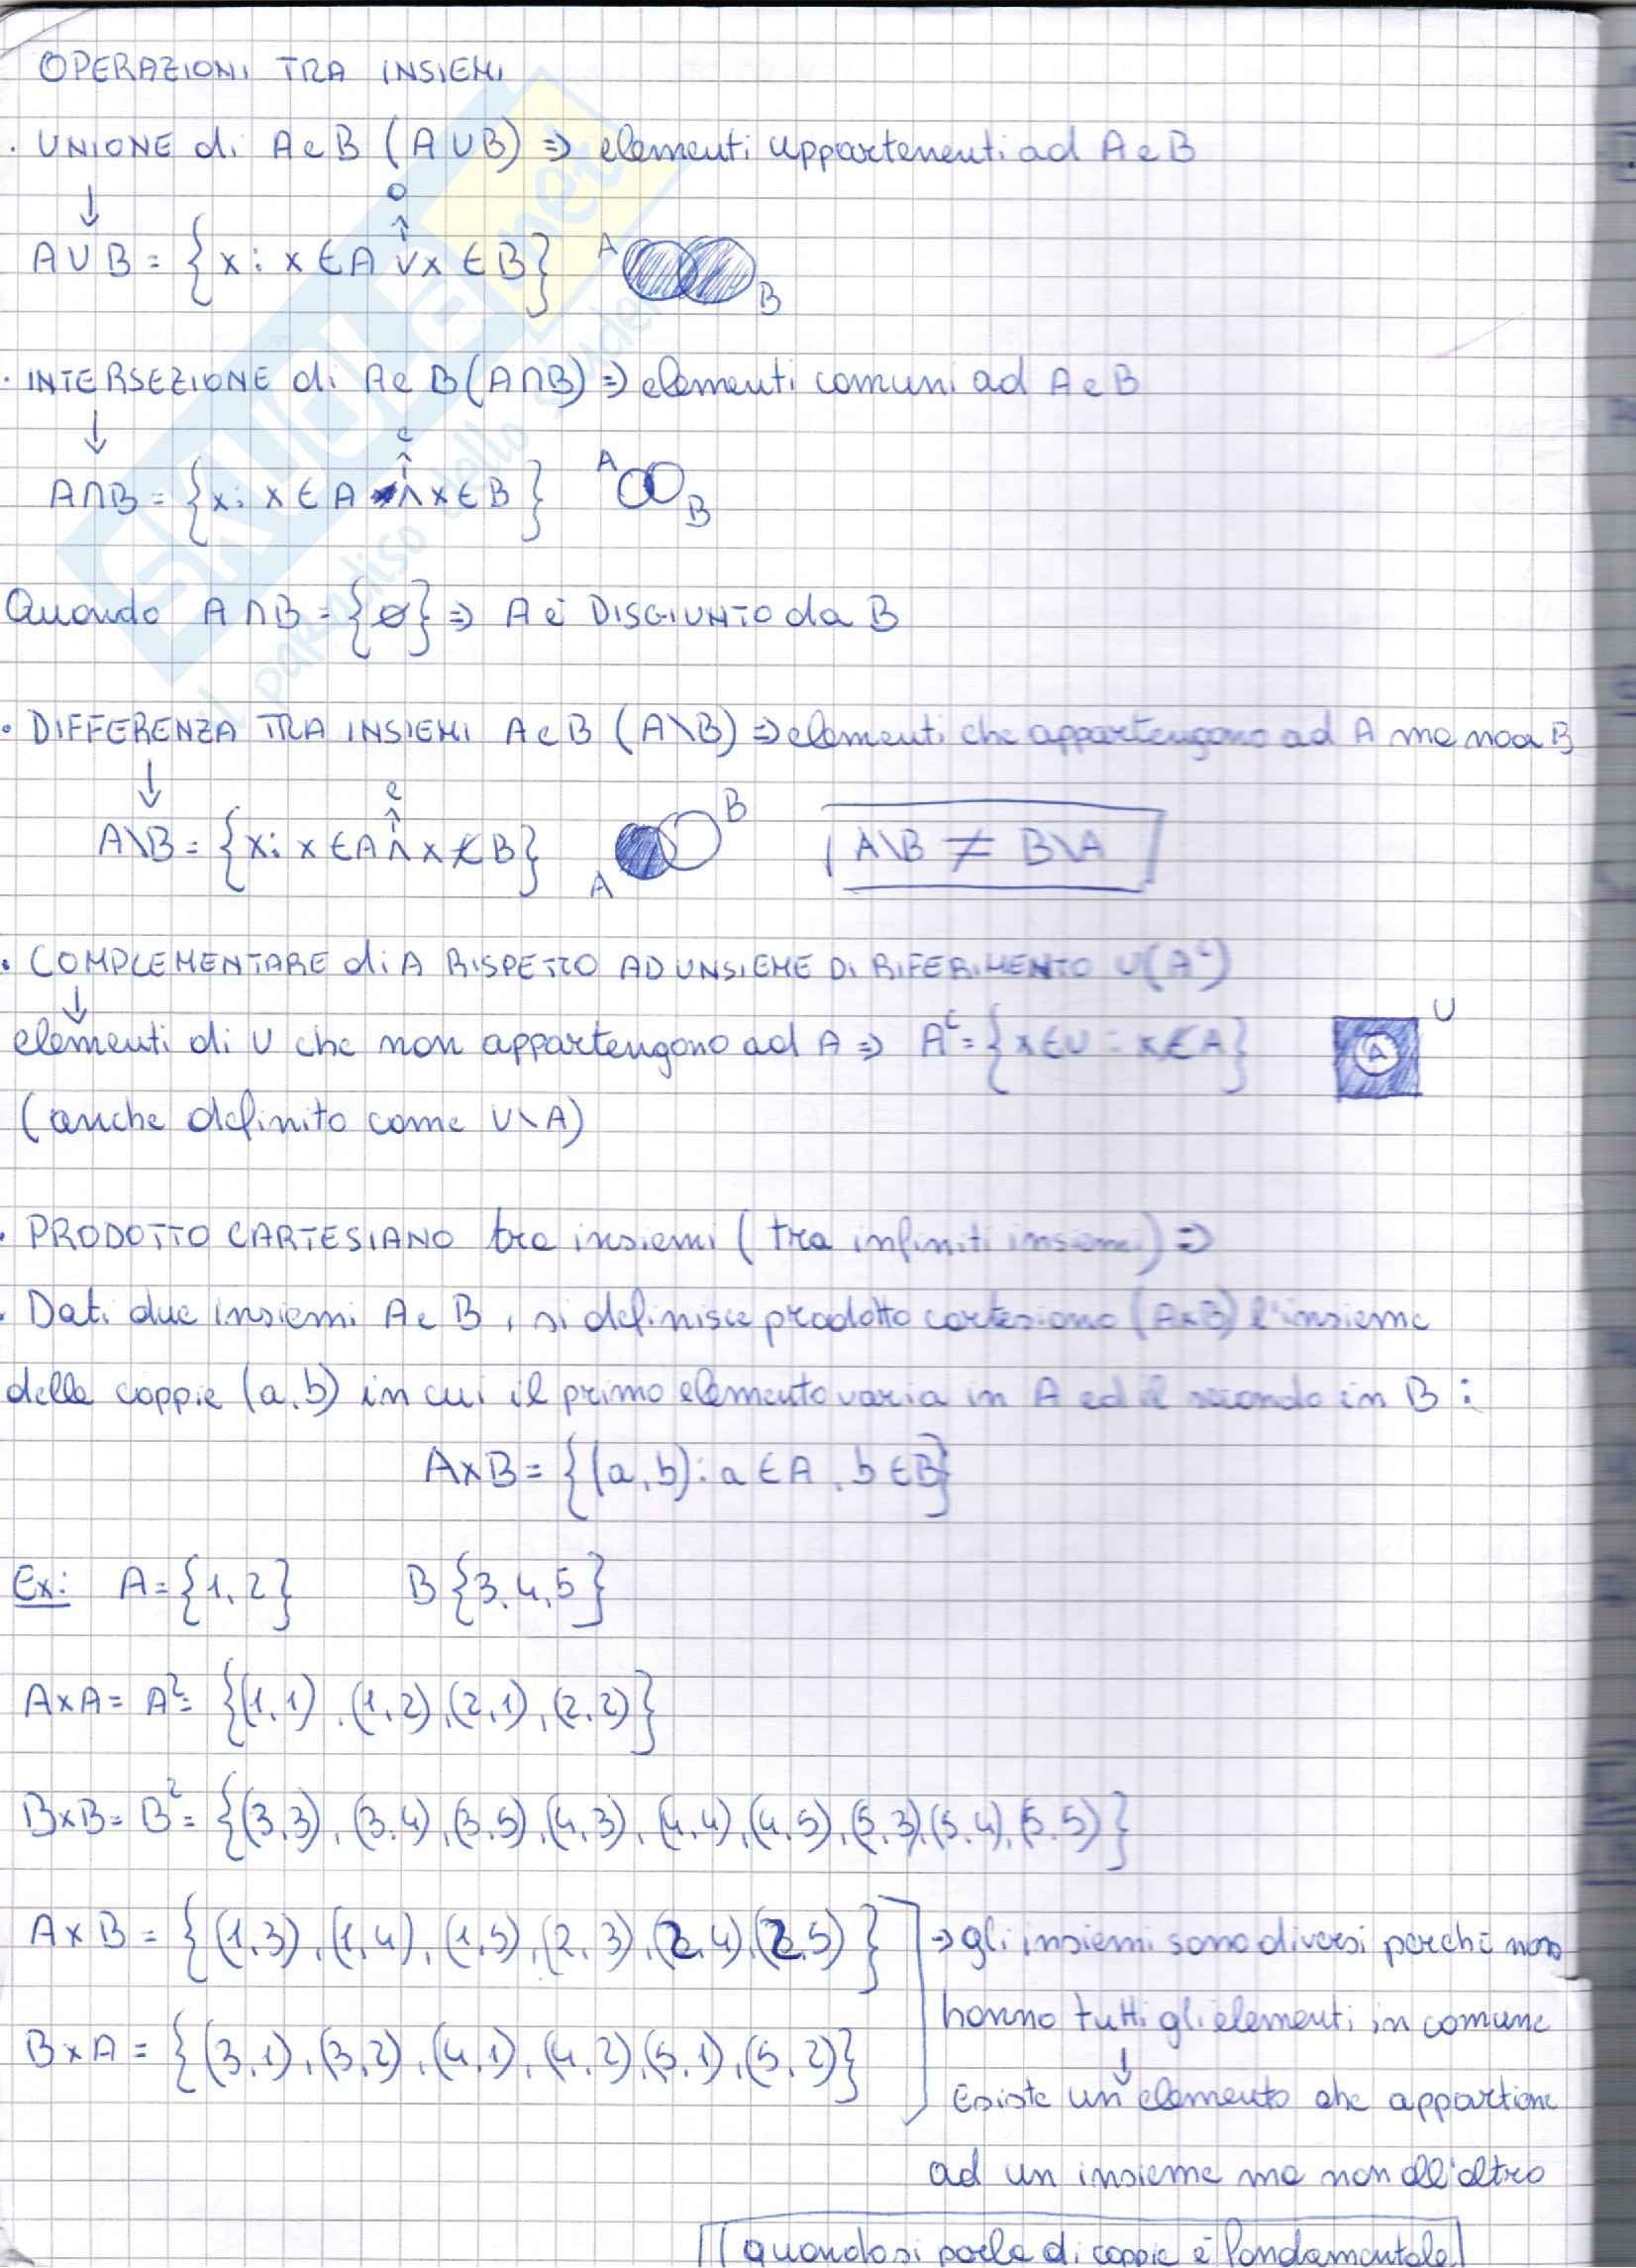 OPERAZIONI TRA INSIEMI
· UNIONE di A e B (A∪B) ⇒ elementi appartenenti ad A e B
↓ o
↑
A∪B = {x : x ∈ A ∨ x ∈ B} A B
· INTERSEZIONE di A e B (A∩B) ⇒ elementi comuni ad A e B
↓ e
↑
A∩B = {x : x ∈ A ∧ x ∈ B} A B
Quando A∩B = {∅} ⇒ A è DISGIUNTO da B
· DIFFERENZA TRA INSIEMI A e B (A\B) ⇒ elementi che appartengono ad A ma non a B
↓ e
↑
A\B = {x : x ∈ A ∧ x ∉ B} A B A\B ≠ B\A
· COMPLEMENTARE di A RISPETTO AD UNSIEME DI RIFERIMENTO U (Aᶜ)
↓
elementi di U che non appartengono ad A ⇒ Aᶜ = {x ∈ U : x ∉ A} A U
(anche definito come U\A)
· PRODOTTO CARTESIANO tra insiemi (tra infiniti insiemi) ⇒
· Dati due insiemi A e B, si definisce prodotto cartesiano (A×B) l'insieme
delle coppie (a,b) in cui il primo elemento varia in A ed il secondo in B :
A×B = {(a,b) : a ∈ A, b ∈ B}
Ex: A = {1,2} B {3,4,5}
A×A = A² = {(1,1), (1,2), (2,1), (2,2)}
B×B = B² = {(3,3), (3,4), (3,5), (4,3), (4,4), (4,5), (5,3), (5,4), (5,5)}
A×B = {(1,3), (1,4), (1,5), (2,3), (2,4) (2,5)} → gli insiemi sono diversi perché non
hanno tutti gli elementi in comune
B×A = {(3,1), (3,2), (4,1), (4,2), (5,1), (5,2)}
↓
Esiste un elemento che appartiene
ad un insieme ma non all'altro
quando si parla di coppie è fondamentale
SKUOLA.net
il paradiso dello studente